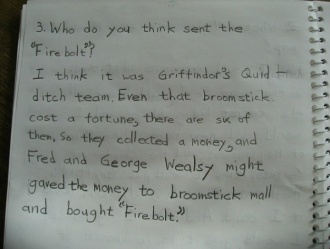 3. Who do you think sent the
"Fire bolt"?
I think it was Griffindor's Quid-
ditch team. Even that broomstick
cost a fortune, there are six of
then, So they collected a money, and
Fred and George Wealsy might
gaved the money to broomstick mall
and bought "Firebolt."